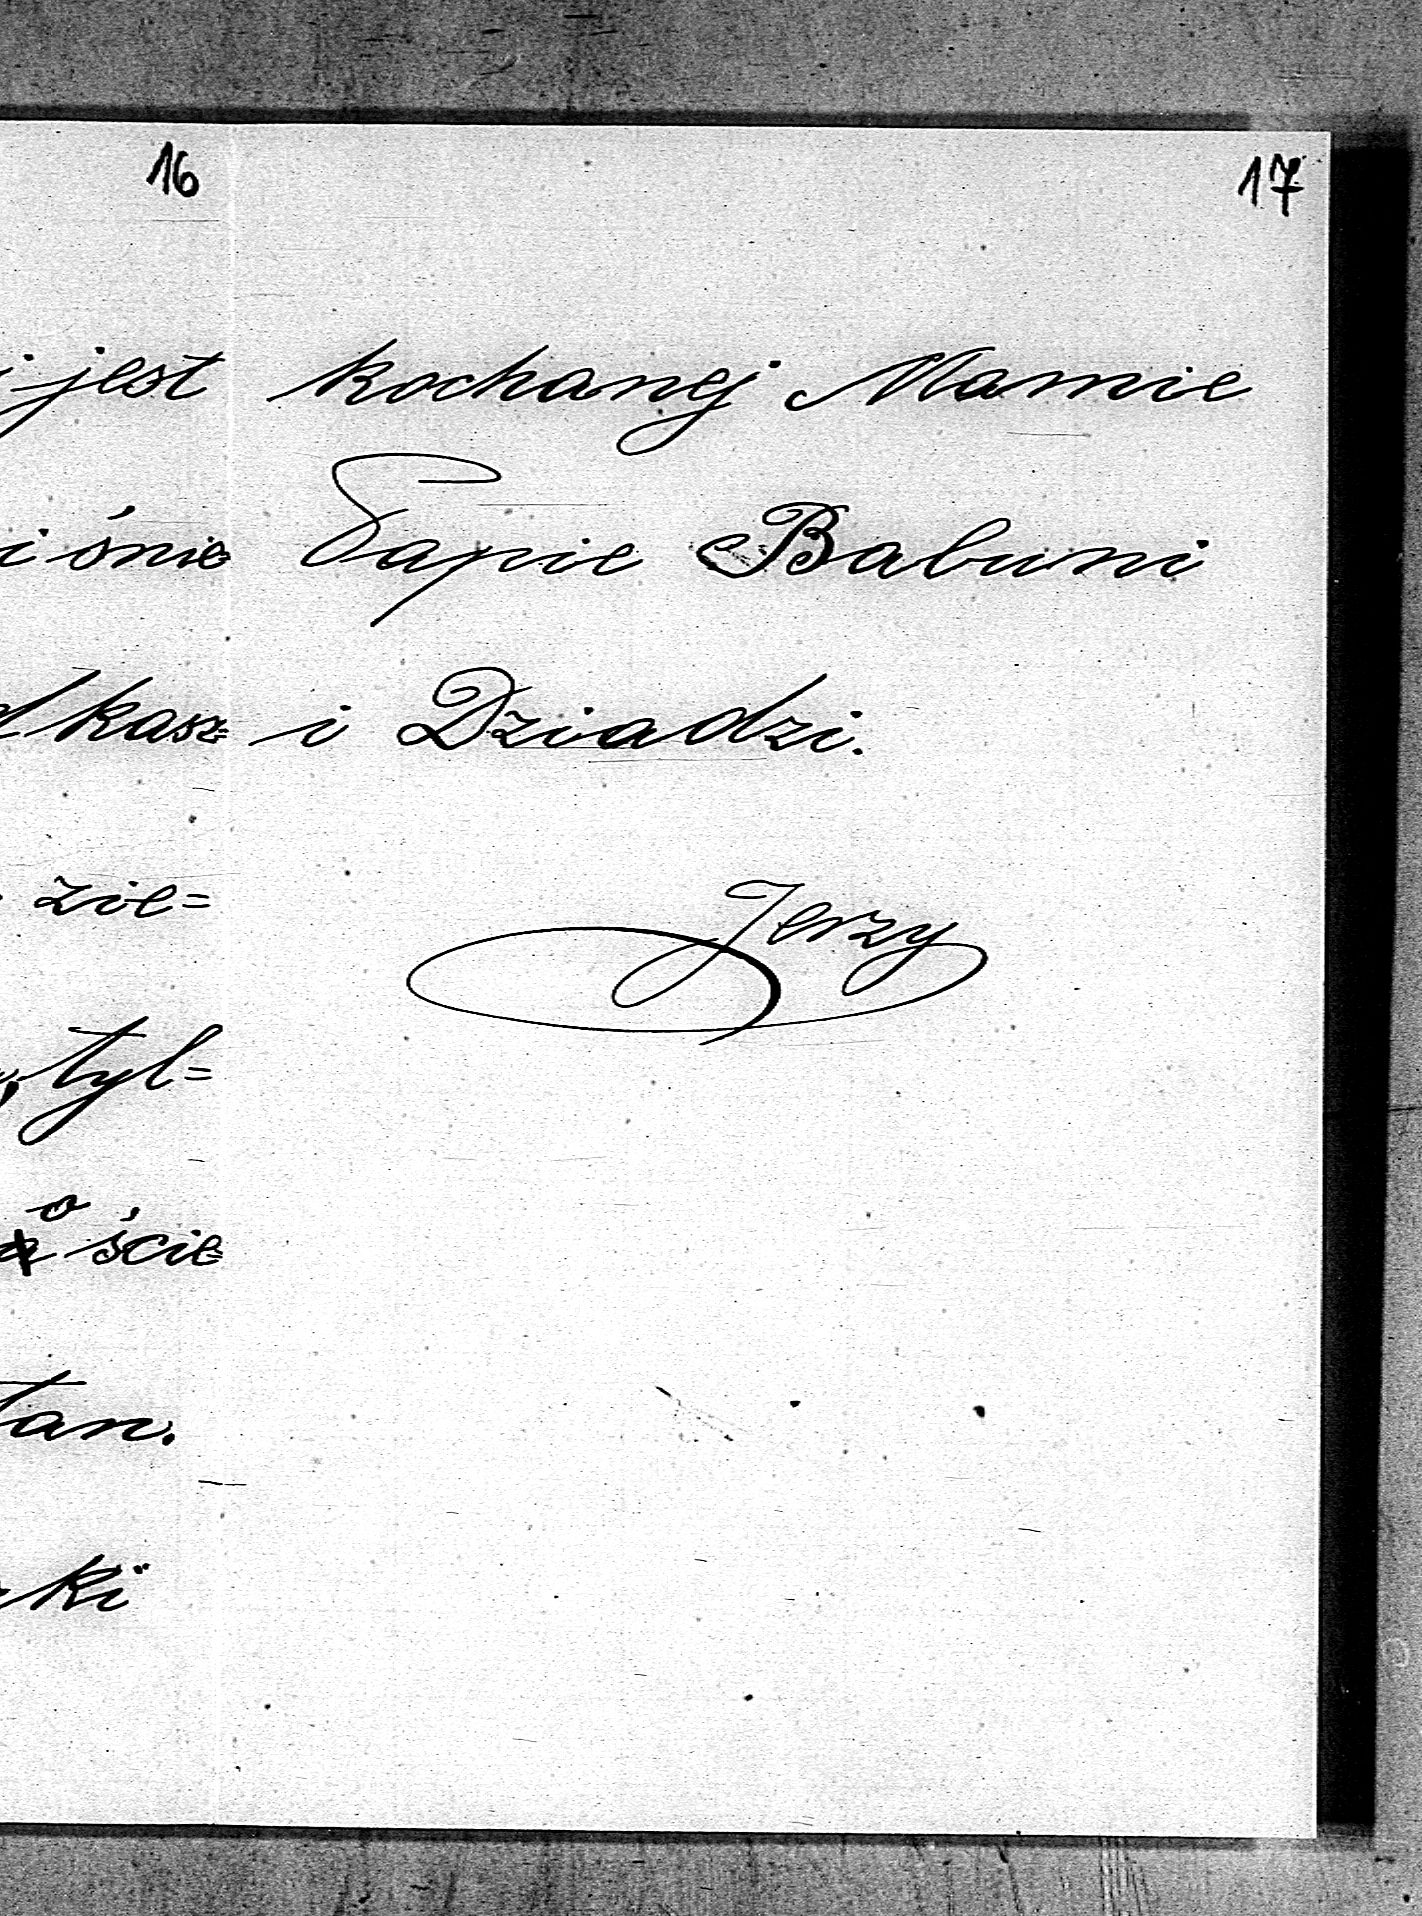 16
jest
i śnie
kasz=
zie=
tyl=
o
ście=
17
kochanej Mamie
Papie Babuni
i Dziadzi.
Jerzy